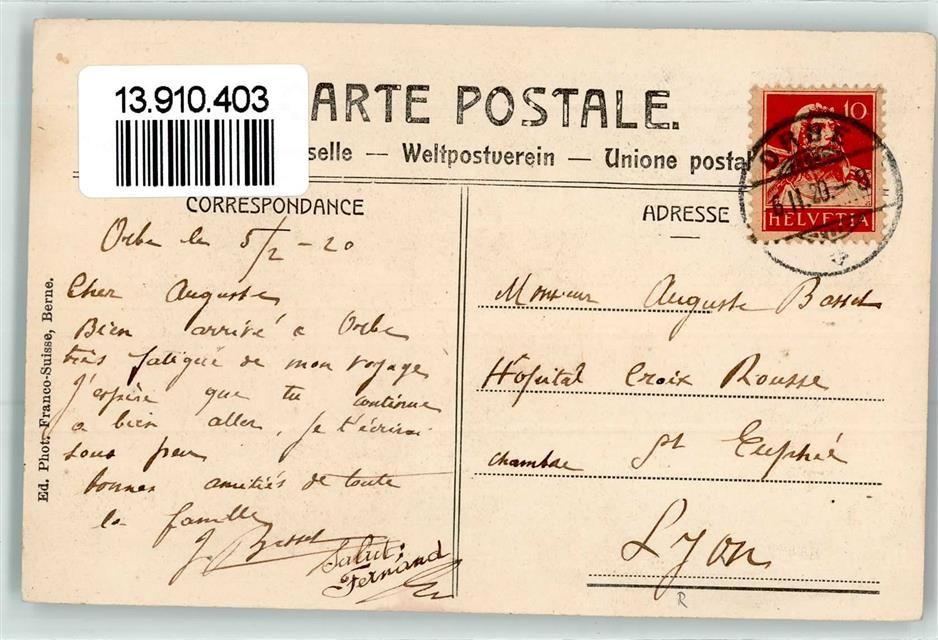 13.910.403
ARTE POSTALE.
selle — Weltpostverein — Unione postal
CORRESPONDANCE
ADRESSE
10
HELVETIA
ORBE
6.II.20.-8
Ed. Phot. Franco-Suisse, Berne.
Orbe le 5/2 - 20
Cher Auguste
Bien arrivé a Orbe
très fatigué de mon voyage
J'espère que tu continue
a bien aller, je t'écrirai
sous peu
bonnes amitiés de toute
la famille
J. Basset
Salut:
Fernand
Monsieur Auguste Basset
Hopital Croix Rousse
chambre St Euphé
Lyon
R